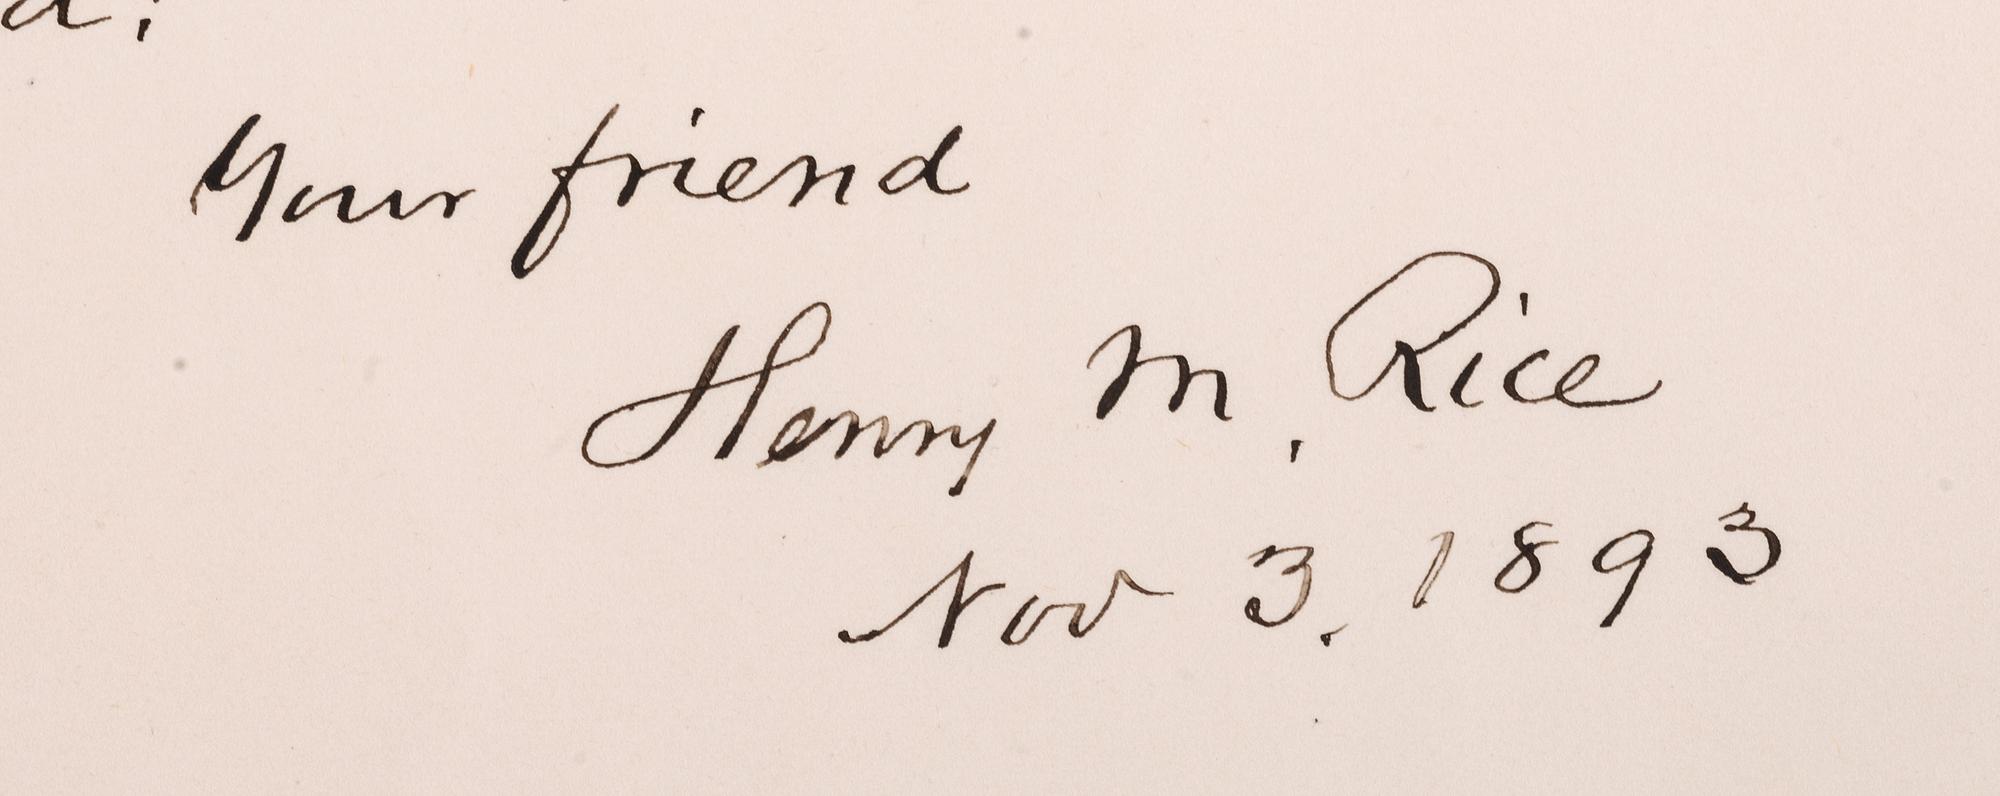 Your friend
Henry M. Rice
Nov 3. 1893